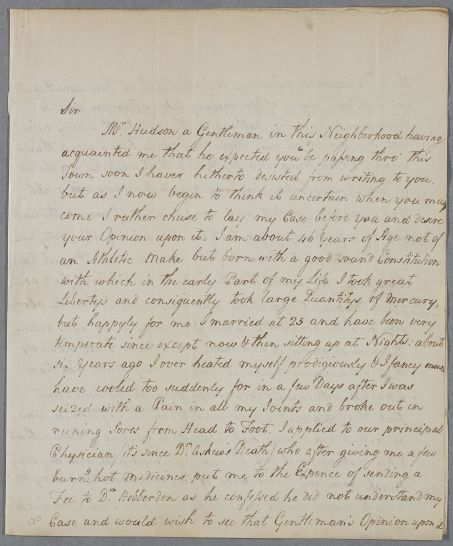 Sir
Mr. Hudson a Gentleman in this Neighborhood having
acquainted me that he expected you'd be passing thro' this
Town soon I have hitherto desisted from writing to you,
but as I now begin to think it uncertain when you may
come I rather chuse to lay my Case before you and desire
your Opinion upon it. I am about 46 Years of Age not of
an Athletic Make but born with a good sound Constitution
with which in the early Part of my Life I took great
Libertys and consiquently took large Quantitys of Mercury,
but happyly for me I married at 25 and have been very
temperate since except now & then sitting up at Nights: about
six Years ago I over heated myself prodigiously & I fancy must
have cooled too suddenly for in a few Days after I was
seized with a Pain in all my Joints and broke out in
runing Sores from Head to Foot. I applied to our principal
Physician (its since Dr. Askew's Death) who after giving me a few
hot medicines put me to the Expence of sending a
Fee to Dr. Heberden as he confessed he did not understand my
Case and would wish to see that Gentleman's Opinion upon it